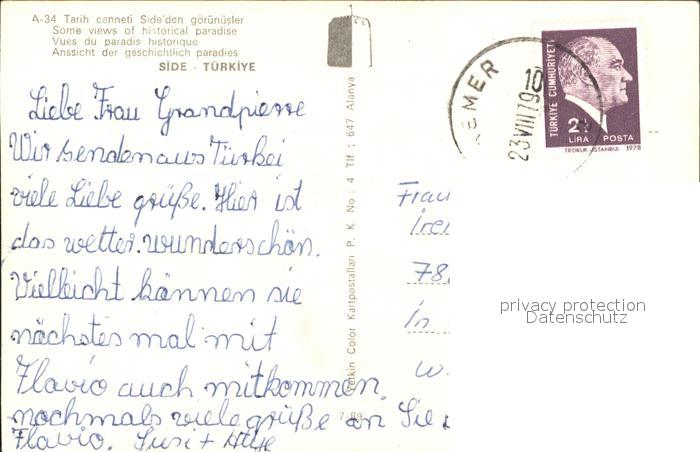 A-34 Tarih cenneti Side'den görünüşler
Some views of historical paradise
Vues du paradis historique
Anssicht der geschichtlich paradies
SİDE - TÜRKİYE
Liebe Frau Grandpierre
Wir senden aus Türkei
viele Liebe grüße. Hier ist
das wetter wunderschön.
Vielleicht kännen sie
nächstes mal mit
Flavio auch mitkommen.
nochmals viele grüße an Sie
Flavio. Susi +
Yetkin Color Kartpostalları P. K. No : 4 Tlf : 647 Alanya
KEMER
10
23 VIII 79
TÜRKİYE CUMHURİYETİ
LİRA POSTA
TİFDRUK-İSTANBUL 1978
Frau
78
in
W.
privacy protection
Datenschutz